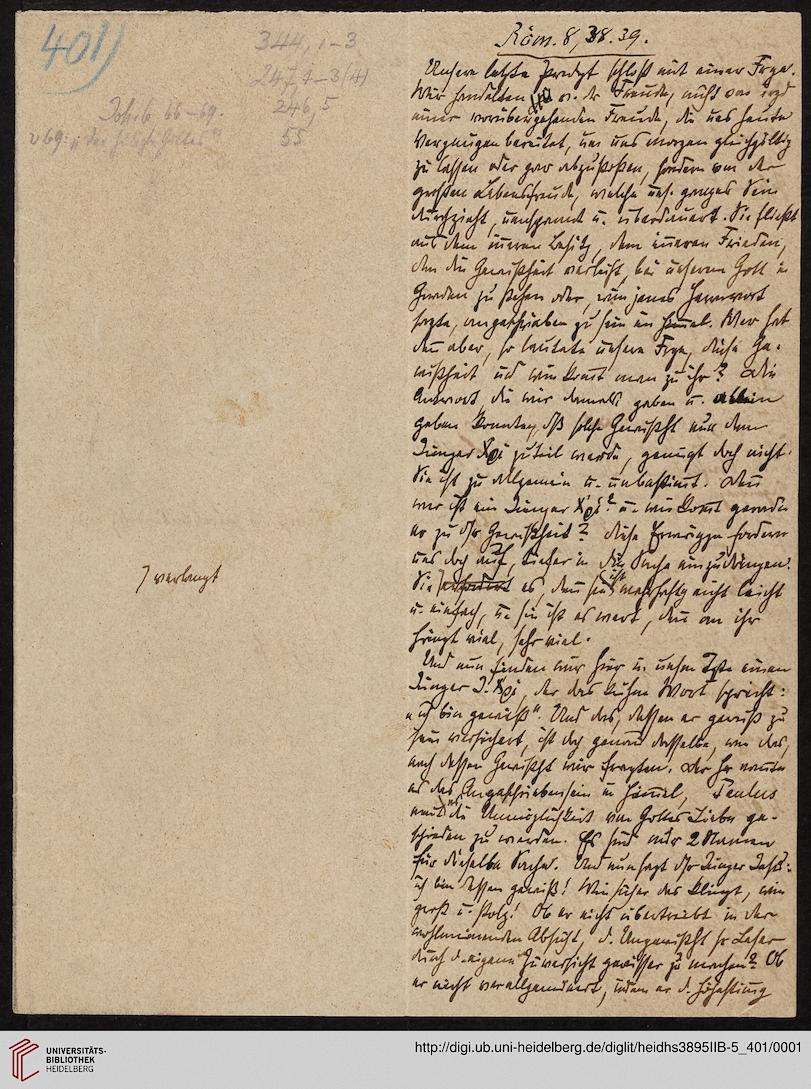 401)
344, 1-3
247, 1-3(4)
Joh. 6. 66-69. 246, 5
v 69: " 55
Röm. 8, 38.39.
Unsere letzte Predigt schloß mit einer Frage.
Wir handelten v. der Freude, nicht von
einer vorübergehenden Freude, die uns heute
Vergnügen bereitet, um uns morgen gleichgültig
zu lassen oder gar abzustoßen, sondern von der
großen Lebensfreude, welche uns. ganzes Sein
durchzieht, u. überdauert. Sie fließt
aus dem inneren Besitz, dem inneren Frieden,
den die Gewißheit verleiht, bei unserem Gott in
Gnaden zu stehen oder, wie jenes Herrnwort
sagte, angeschrieben zu sein im Himmel. Wer hat
denn aber, so lautete unsere Frage, diese Ge-
wißheit und wie kommt man zu ihr? Die
Antwort die wir damals gaben u. allein
geben konnten, daß solche Gewißht nur dem
Jünger Xi zuteil werde, genügt doch nicht.
Sie ist zu allgemein u. unbestimmt. Denn
wer ist ein Jünger Xi? u. wie kommt gerade
er zu dsr Gewißheit? Diese fordern
uns doch auf, tiefer in die Sache einzudringen.
Sie es, denn sie ist wahrhaftig nicht leicht
u. einfach, u. sie ist es wert, denn an ihr
hängt viel, sehr viel.
Und nun finden wir hier in unserm Texte einen
Jünger J. Xi, der das kühne Wort spricht:
"ich bin gewiß". Und das, dessen er gewiß zu
sein versichert, ist doch genau dasselbe, wie das,
nach dessen Gewißht wir fragten. Der Hr nannte
es das Angeschriebensein im Himmel, Paulus
nennt es die Unmöglichkeit von Gottes Liebe ge-
schieden zu werden. Es sind nur 2 Namen
für dieselbe Sache. Und nun sagt dsr Jünger Jesu:
ich bin dessen gewiß! Wie sicher das klingt, wie
groß u. stolz! Ob er nicht übertreibt in der
wohlmeinenden Absicht, d. Ungewißht sr Leser
durch d. eigene Zuversicht gewisser zu machen? Ob
er nicht verallgemeinert, indem er d.
⁊ verlangt
UNIVERSITÄTS-
BIBLIOTHEK
HEIDELBERG
http://digi.ub.uni-heidelberg.de/diglit/heidhs3895IIB-5_401/0001